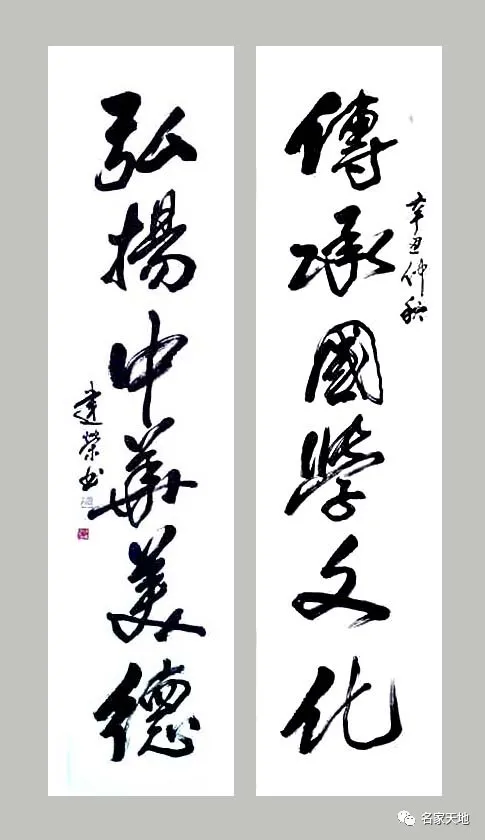 傳承國學文化
辛丑仲秋
弘揚中華美德
建榮书
名家天地